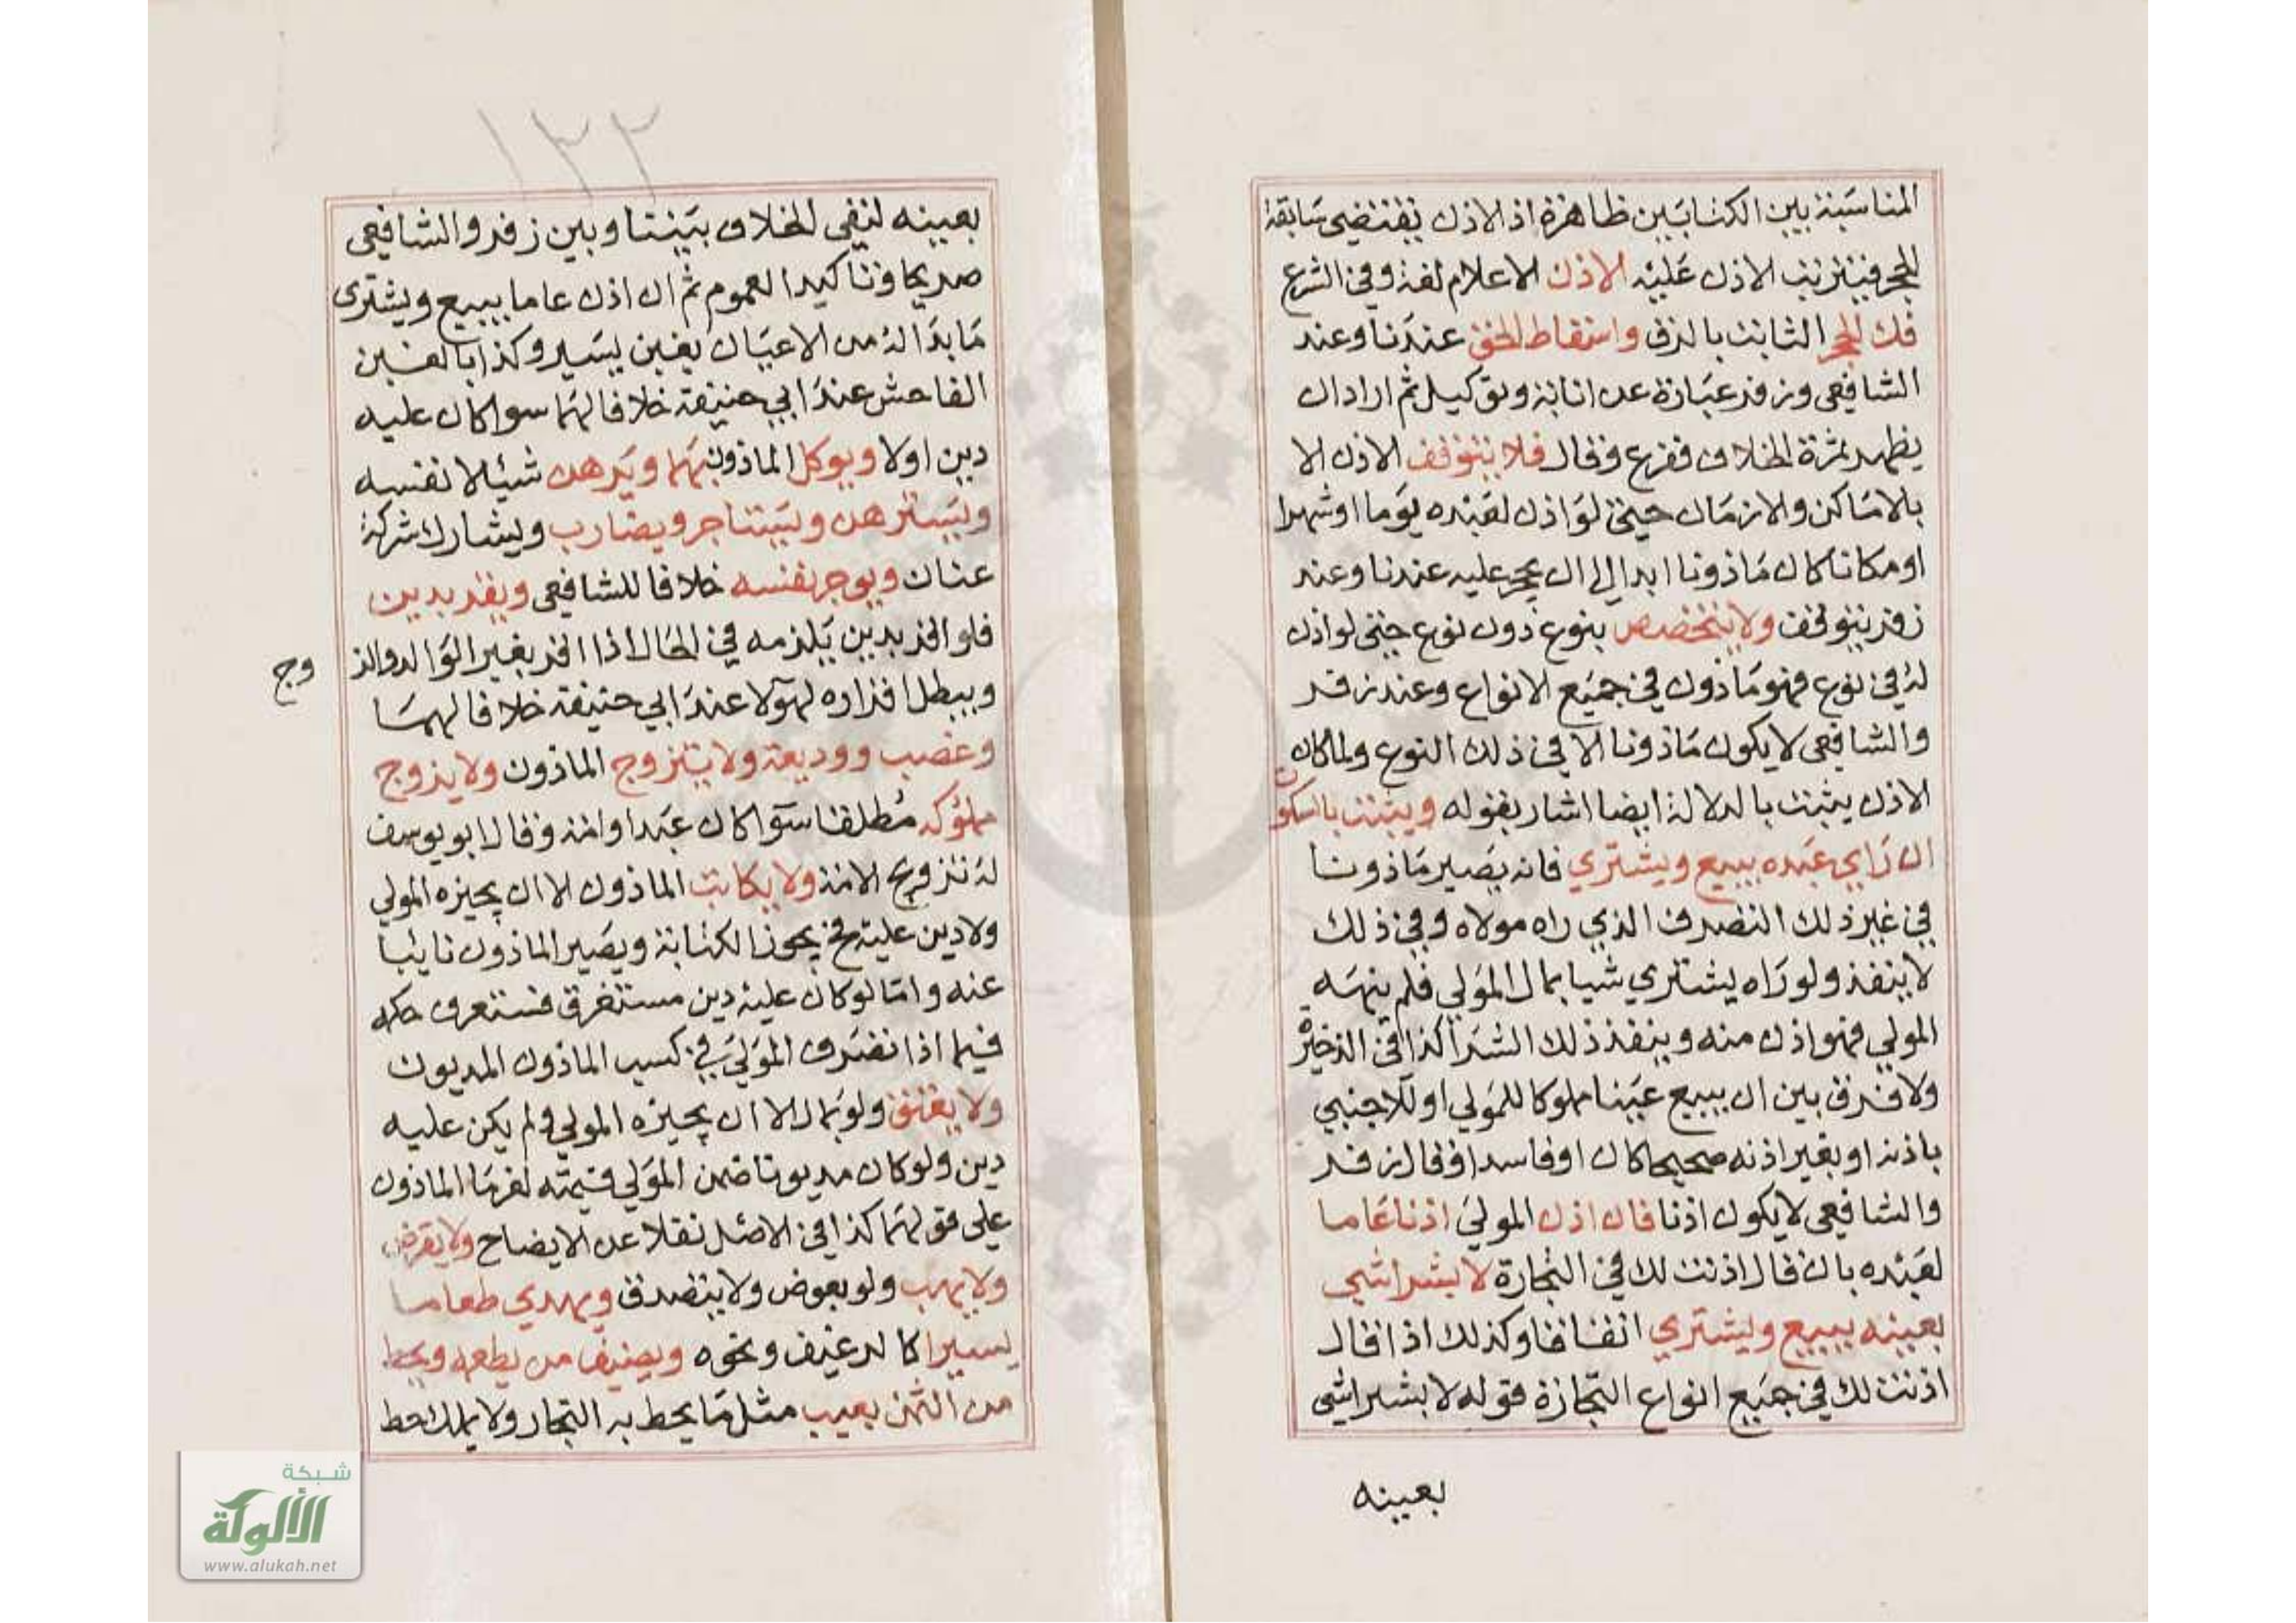 المناسبة بين الكتابين ظاهرة اذ الاذن يقتضي سابقة
الحجر فيترتب الاذن عليه الاذن الاعلام لغة وفي الشرع
فك الحجر الثابت بالرق واسقاط الحق عندنا وعند
الشافعي وزفر عبارة عن انابة وتوكيل ثم اراد ان
يظهر ثمرة الخلاف ففرع وقال فلا يتوقف الاذن الا
بالاماكن والازمان حتى لو اذن لعبده يوما او شهرا
او مكانا كان ماذونا ابدا الى ان يحجر عليه عندنا وعند
زفر يتوقف ولا يتخصص بنوع دون نوع حتى لو اذن
له في نوع فهو ماذون في جميع الانواع وعند زفر
والشافعي لا يكون ماذونا الا في ذلك النوع ولما كان
الاذن يثبت بالدلالة ايضا اشار بقوله ويثبت بالسكوت
ان راي عبده يبيع ويشتري فانه يصير ماذونا
في غير ذلك التصرف الذي راه مولاه وفي ذلك
لا ينفذ ولو راه يشتري شيا بمال المولي فلم ينهه
المولي فهو اذن منه وينفذ ذلك الشرا كذا في الذخيرة
ولا فرق بين ان يبيع عينا مملوكا للمولي او للاجنبي
باذنه او بغير اذنه صحيحا كان او فاسدا وقال زفر
والشافعي لا يكون اذنا فان اذن المولي اذنا عاما
لعبده بان قال اذنت لك في التجارة لا بشرا شي
بعينه يبيع ويشتري اتفاقا وكذلك اذا قال
اذنت لك في جميع انواع التجارة قوله لا بشرا شي
بعينه
١٢٢
بعينه لنفي الخلاف بيننا وبين زفر والشافعي
صريحا وتاكيدا لعموم ثم ان اذن عاما يبيع ويشتري
ما بدا له من الاعيان بغبن يسير وكذا بالغبن
الفاحش عند ابي حنيفة خلافا لهما سوا كان عليه
دين اولا ويوكل الماذون بهما ويرهن شيئا لا نفسه
ويسترهن ويستاجر ويضارب ويشارك شركة
عنان ويوجر نفسه خلافا للشافعي ويقر بدين
فلو اقر بدين يلزمه في الحال اذا اقر بغير الوالد والز
وج
ويبطل اقراره لهولا عند ابي حنيفة خلافا لهما
وغصب ووديعة ولا يتزوج الماذون ولا يزوج
مملوكه مطلقا سوا كان عبدا او امة وقال ابو يوسف
له تزويج الامة ولا يكاتب الماذون الا ان يجيزه المولي
ولا دين عليه فح يجوز الكتابة ويصير الماذون نايبا
عنه واما لو كان عليه دين مستغرق فستعرف حكمه
فيما اذا تصرف المولي في كسب الماذون المديون
ولا يعتق ولو بمال الا ان يجيزه المولي ولم يكن عليه
دين ولو كان مديونا ضمن المولي قيمته لغرما الماذون
علي قولهما كذا في الاصل نقلا عن الايضاح ولا يقرض
ولا يهب ولو بعوض ولا يتصدق ويهدي طعاما
يسيرا كالرغيف ونحوه ويضيف من يطعمه ويحط
من الثمن بعيب مثل ما يحط به التجار ولا يملك حط
شبكة
الألوكة
www.alukah.net